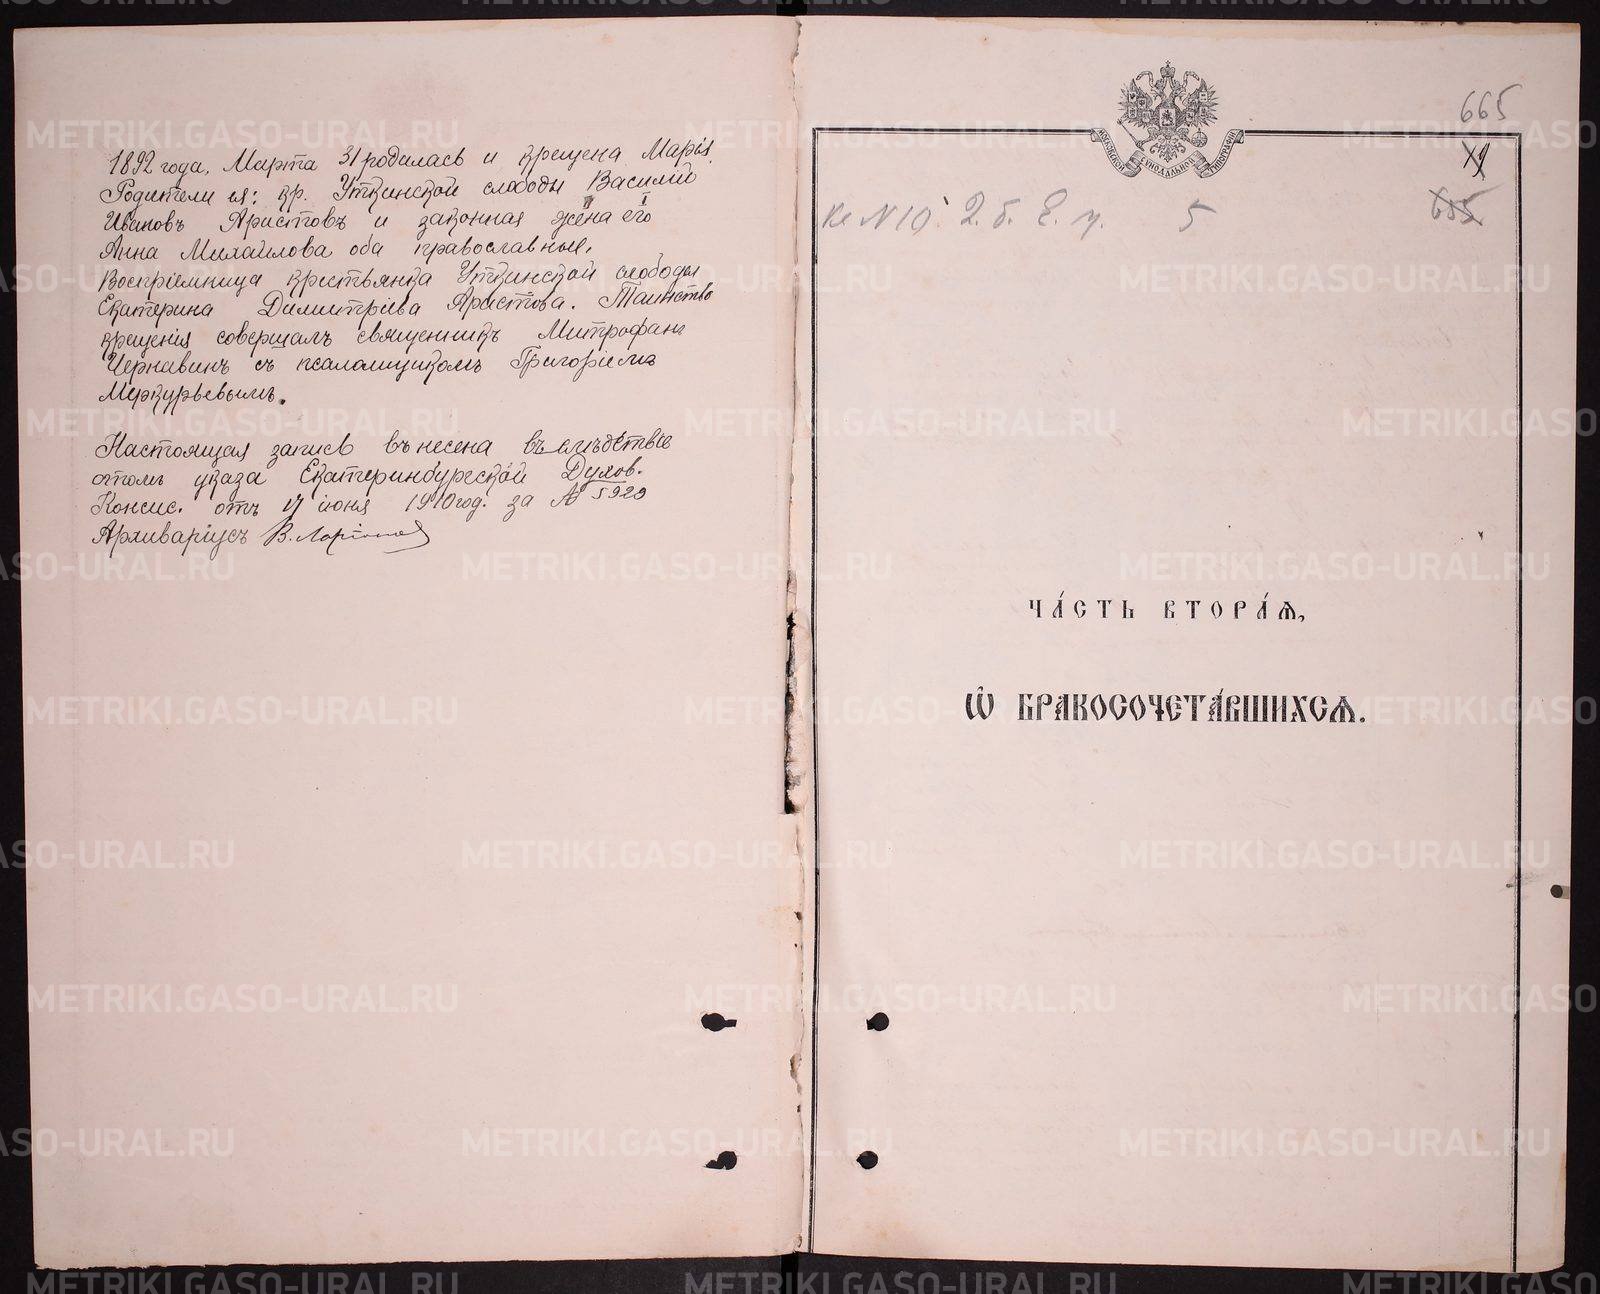 1892 года, Марта 31 родилась и крещена Марія.
Родители ея: кр. Уткинской слободы Василій
Ивановъ Аристовъ и законная жена его
Анна Михайлова оба православные.
Воспріемница крестьянка Уткинской слободы
Екатерина Димитріева Аристова. Таинство
крещенія совершалъ священникъ Митрофанъ
Чернавинъ съ псаломщикомъ Григоріемъ
Меркурьевымъ.
Настоящая запись внесена въ слѣдствіе
указа Екатеринбургской Духов.
Консис. отъ 17 іюня 1910 год. за № 5929
Архиваріусъ В.
665
665
МОСКОВСКОЙ СѴНОДАЛЬНОЙ ТИПОГРАФІИ
Ке № 10. 2. б. Е. у. 5
ЧА́СТЬ ВТОРА́Ѧ,
Ѽ БРАКОСОЧЕТА́ВШИХСѦ.
METRIKI.GASO-URAL.RU